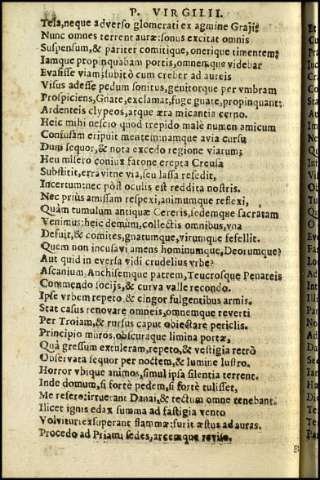 P. VIRGILII.
Tela, neque aduerso glomerati ex agmine Graij:
Nunc omnes terrent auræ: sonus excitat omnis
Suspensum, & pariter comitique, onerique timentem:
Iamque propinquabam portis, omnemque videbar
Euasisse viam: subitò cum creber ad aureis
Visus adesse pedum sonitus, genitorque per vmbram
Prospiciens, Gnate, exclamat, fuge gnate, propinquant:
Ardenteis clypeos, atque æra micantia cerno.
Heic mihi nescio quod trepido malè numen amicum
Confusam eripuit mentem: namque auia cursu
Dum sequor, & nota excedo regione viarum:
Heu misero coniux fatone erepta Creusa
Substitit, erra vitne via, seu lassa resedit,
Incertum: nec póst oculis est reddita nostris.
Nec prius amissam respexi, animumque reflexi,
Quàm tumulum antiquæ Cereris, sedemque sacratam
Venimus: heic demùm, collectis omnibus, vna
Defuit, & comites, gnatumque, virumque fefellit.
Quem non incusaui amens hominumque, Deorumque?
Aut quid in euersa vidi crudelius vrbe?
Ascanium, Anchisemque patrem, Teucrosque Penateis
Commendo socijs, & curua valle recondo.
Ipse vrbem repeto & cingor fulgentibus armis.
Stat casus renouare omneis, omnemque reuerti
Per Troiam, & rursus caput obiectare periclis.
Principio muros, obscuraque limina portæ,
Quà gressum extuleram, repeto, & vestigia retrò
Obseruata sequor per noctem, & lumine lustro.
Horror vbique animos, simul ipsa silentia terrent.
Inde domum, si fortè pedem, si fortè tulisset,
Me refero: irruerant Danai, & tectum omne tenebant.
Ilicet ignis edax summa ad fastigia vento
Voluitur: exsuperant flammæ: furit æstus ad auras.
Procedo ad Priami sedes, arcemque reuiso.